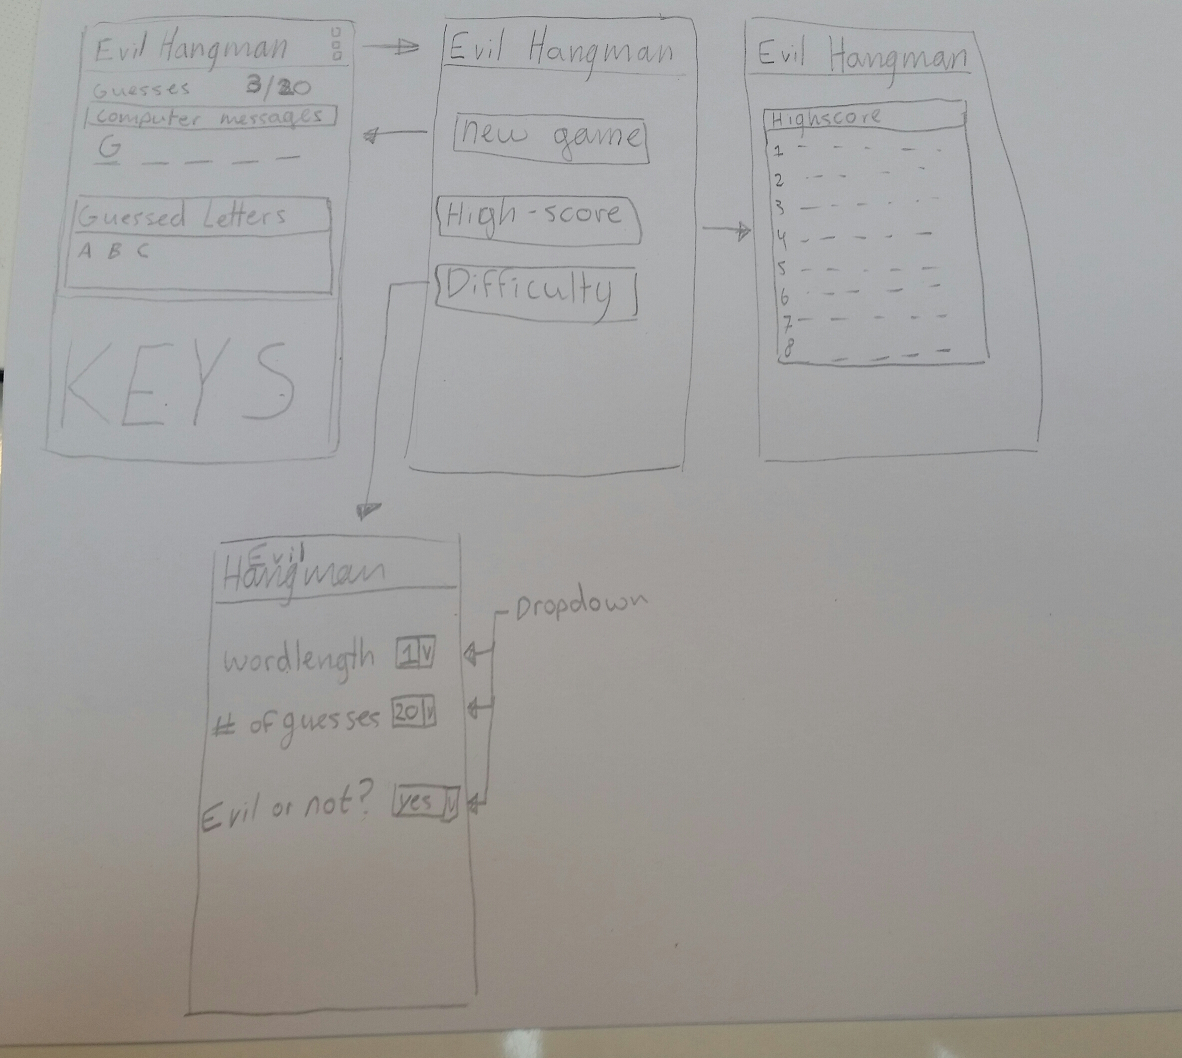 Evil Hangman
Guesses 3/20
computer messages
G _ _ _ _
Guessed Letters
A B C
KEYS
Evil Hangman
new game
High-score
Difficulty
Evil Hangman
Highscore
1 - - - - -
2 - - - - -
3 - - - - -
4 - - - - -
5 - - - - -
6 - - - - -
7 - - - - -
8 - - - - -
Evil
Hangman
wordlength 1 v
# of guesses 20 v
Evil or not? yes v
Dropdown